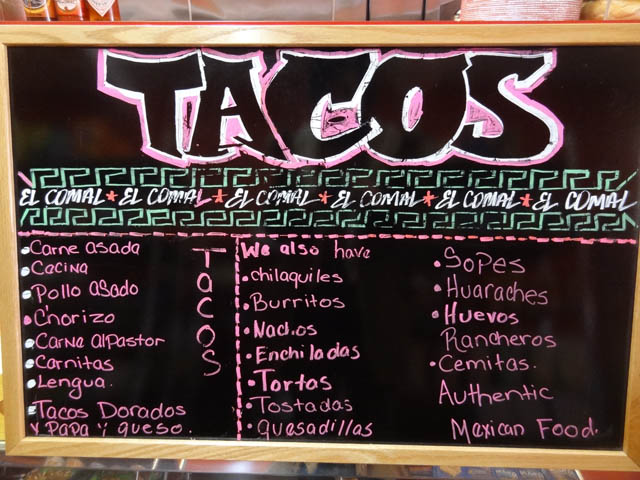 TACOS
EL COMAL * EL COMAL * EL COMAL * EL COMAL * EL COMAL * EL COMAL
Carne asada
Cacina
Pollo asado
C'horizo
Carne alpastor
Carnitas
Lengua.
Tacos Dorados
y Papa y queso.
TACOS
We also have
chilaquiles
Burritos
Nachos
Enchiladas
Tortas
Tostadas
Quesadillas
Sopes
Huaraches
Huevos
Rancheros
Cemitas.
Authentic
Mexican Food.